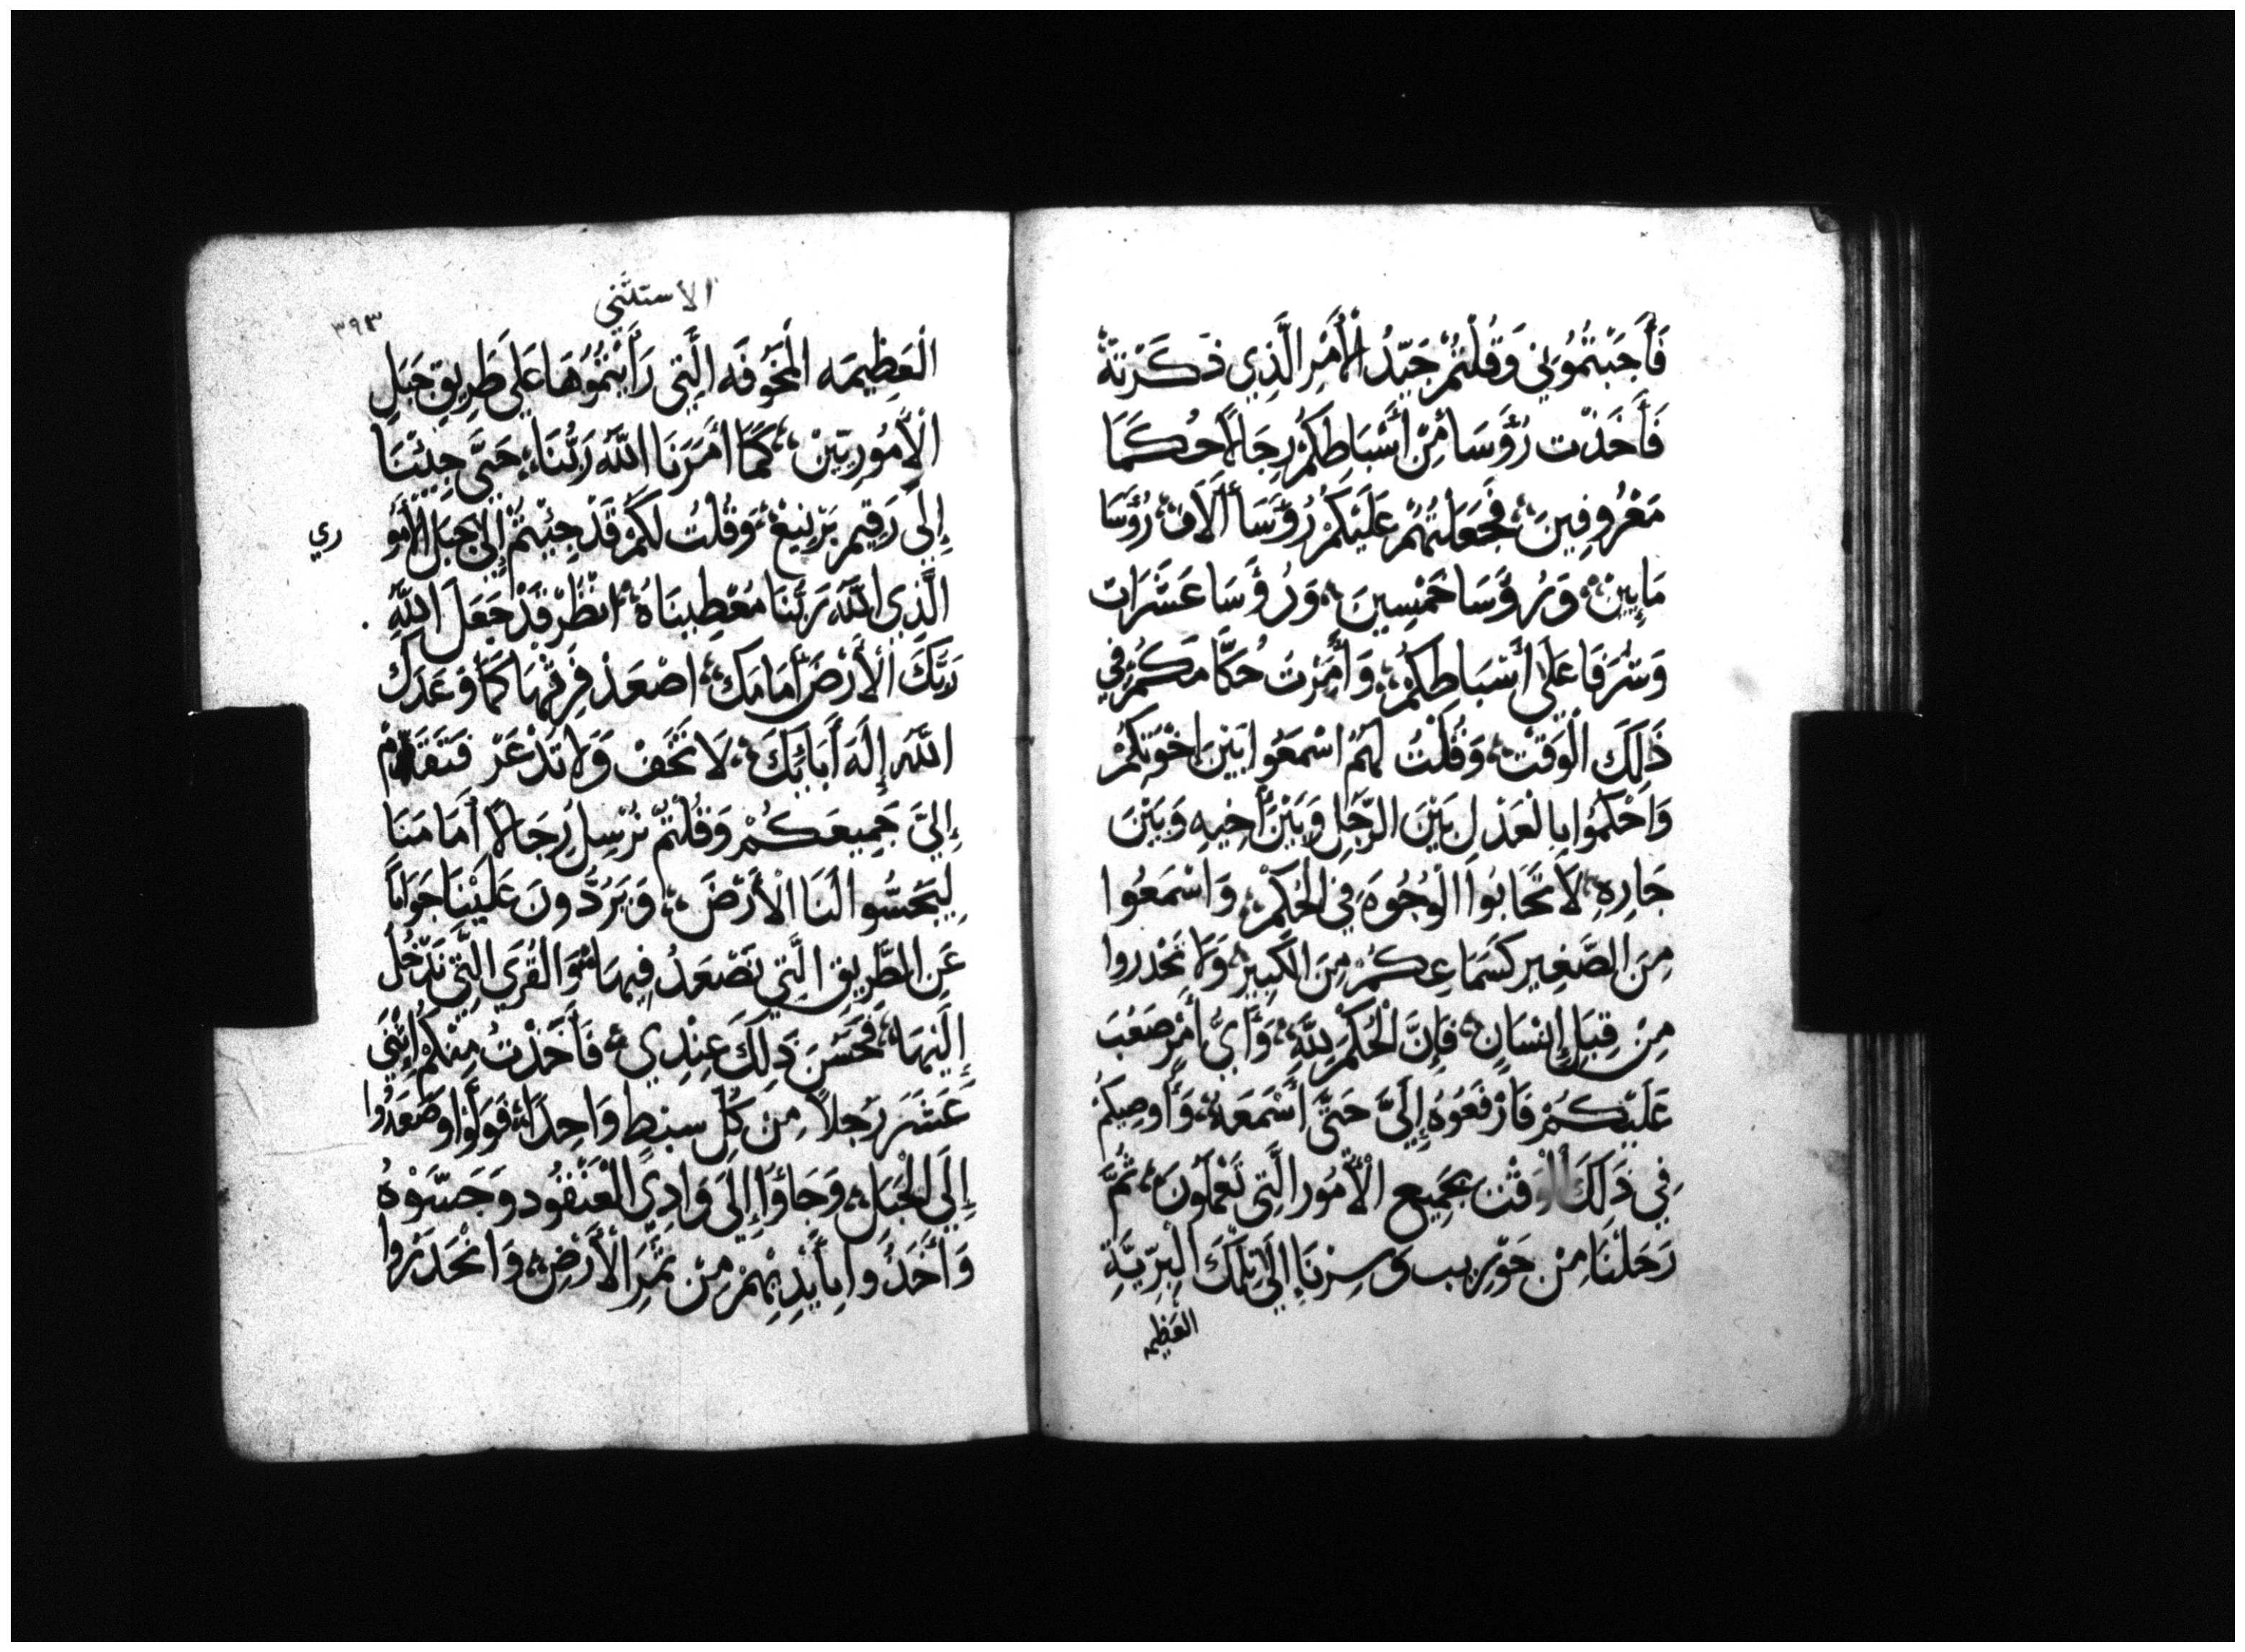 فَأَجَبْتُمُونِي وَقُلْتُمْ جَيِّدُ الْأَمْرِ الَّذِي ذَكَرْتَهُ
فَأَخَذْت رُؤَسَا مِنْ أَسْبَاطِكُمْ رِجَالًا حُكَمَا
مَعْرُوفِينَ، فَجَعَلْتُهُمْ عَلَيْكُمْ رُؤَسَا أَلَافْ، رُؤَسَا
مَايِينْ، وَرُؤَسَا خَمْسِينَ، وَرُؤَسَا عَشَرَات
وَشُرَفَا عَلَى أَسْبَاطِكُمْ، وَأَمَرْتُ حُكَّامَكُمْ فِي
ذَلِكَ الْوَقْتْ، وَقُلْتُ لَهُمْ اسْمَعُوا بَيْنَ اخْوَتِكُمْ
وَاحْكُمُوا بِالْعَدْلِ بَيْنَ الرَّجُلِ وَبَيْنَ أَخِيهِ وَبَيْنَ
جَارِهِ، لَا تُحَابُوا الْوُجُوهَ فِي الْحُكْمْ، وَاسْمَعُوا
مِنَ الصَّغِيرِ كَسَمَاعِكُمْ مِنَ الكَبِيرْ، وَلَا تَحْذَرُوا
مِنْ قِبَلِ إِنْسَانٍ، فَإِنَّ الْحُكْمَ لِلَّهِ، وَأَيُّ أَمْرٍ صَعُبَ
عَلَيْكُمْ فَارْفَعُوهُ إِلَيَّ حَتَّى أَسْمَعَهُ، وَأُوصِيكُمْ
فِي ذَلِكَ الْوَقْتْ بِجَمِيعِ الْأُمُورِ الَّتِي تَعْمَلُونَ، ثُمَّ
رَحَلْنَا مِنْ حَوْرِيبَ وَسِرْنَا إِلَى تِلْكَ الْبَرِّيَّةِ
العَظِيمه
الاستثني
٣٩٣
الْعَظِيمَه الْمَخُوفَه الَّتِي رَأَيْتُمُوهَا عَلَى طَرِيقِ جَبَلِ
الْأَمُورِيِّينْ، كَمَا أَمَرَنَا اللَّهُ رَبُّنَا، حَتَّى جِئْنَا
إِلَى رَقِيمِ بَرْنِيعْ، وَقُلْتُ لَكُمْ قَدْ جِئْتُمْ إِلَى جَبَلِ الْأَمُو
ري
الَّذِي اللَّهُ رَبُّنَا مُعْطِينَاهُ، انْظُرْ قَدْ جَعَلَ اللَّهِ
رَبُّكَ الْأَرْضَ أَمَامَكَ، اصْعَدْ فَرِثْهَا كَمَا وَعَدَكَ
اللَّهُ إِلَهَ أَبَائِكَ، لَا تَخَفْ وَلَا تَذْعَرْ فَتَقَدَّمْتُمْ
إِلَيَّ جَمِيعَكُمْ وَقُلْتُمْ نُرْسِلُ رِجَالًا أَمَامَنَا
لِيَجُسُّوا لَنَا الْأَرْضَ، وَيَرُدُّونَ عَلَيْنَا جَوَابًا
عَنِ الطَّرِيقِ الَّتِي نَصْعَدُ فِيهَا، وَالْقُرَى الَّتِي نَدْخُلُ
إِلَيْهَا، فَحَسُنَ ذَلِكَ عِنْدِي، فَأَخَذْتُ مِنْكُمْ إِثْنَي
عَشَرَ رَجُلاً مِنْ كُلِّ سِبْطٍ وَاحِدًا، فَوَلَّوْا وَصَعَدُوا
إِلَى الْجَبَلِ، وَجَاؤُا إِلَى وَادِي الْعَنْقُودِ وَجَسّوْهُ
وَأَخَذُوا بِأَيْدِيهِمْ مِنْ ثَمَرَ الْأَرْضِ، وَانْحَدَرُوا